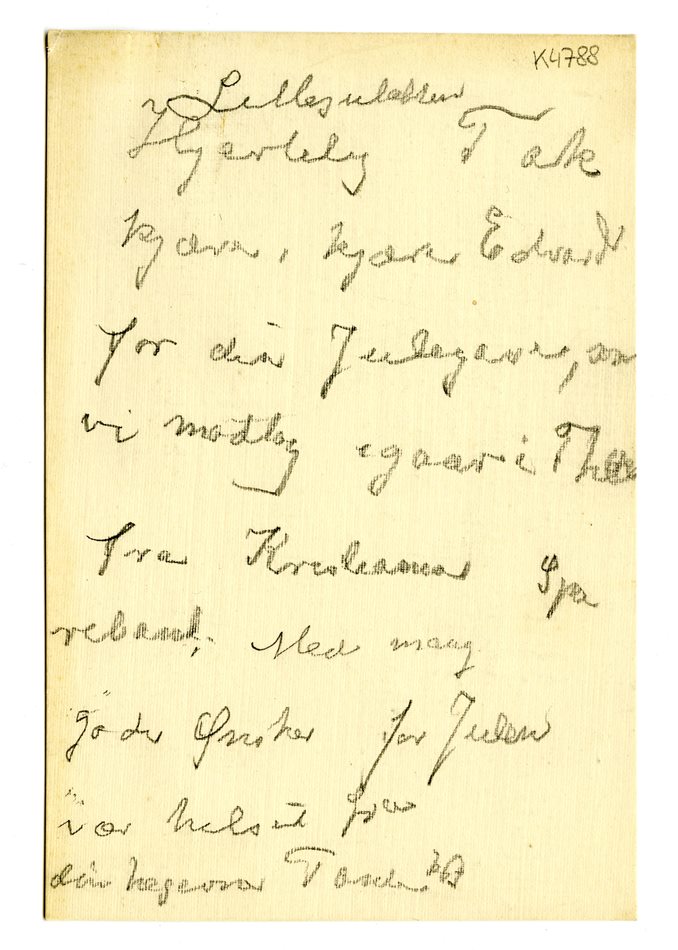 K4788
Lillejulaften
Hjertelig Tak
kjære, kjære Edvard
for din Julegave,
vi modtog igaar i
fra Kristiania Spa
rebank. Med mang
gode Ønsker for Julen
vær hilset fra
din hegivne Tante KB